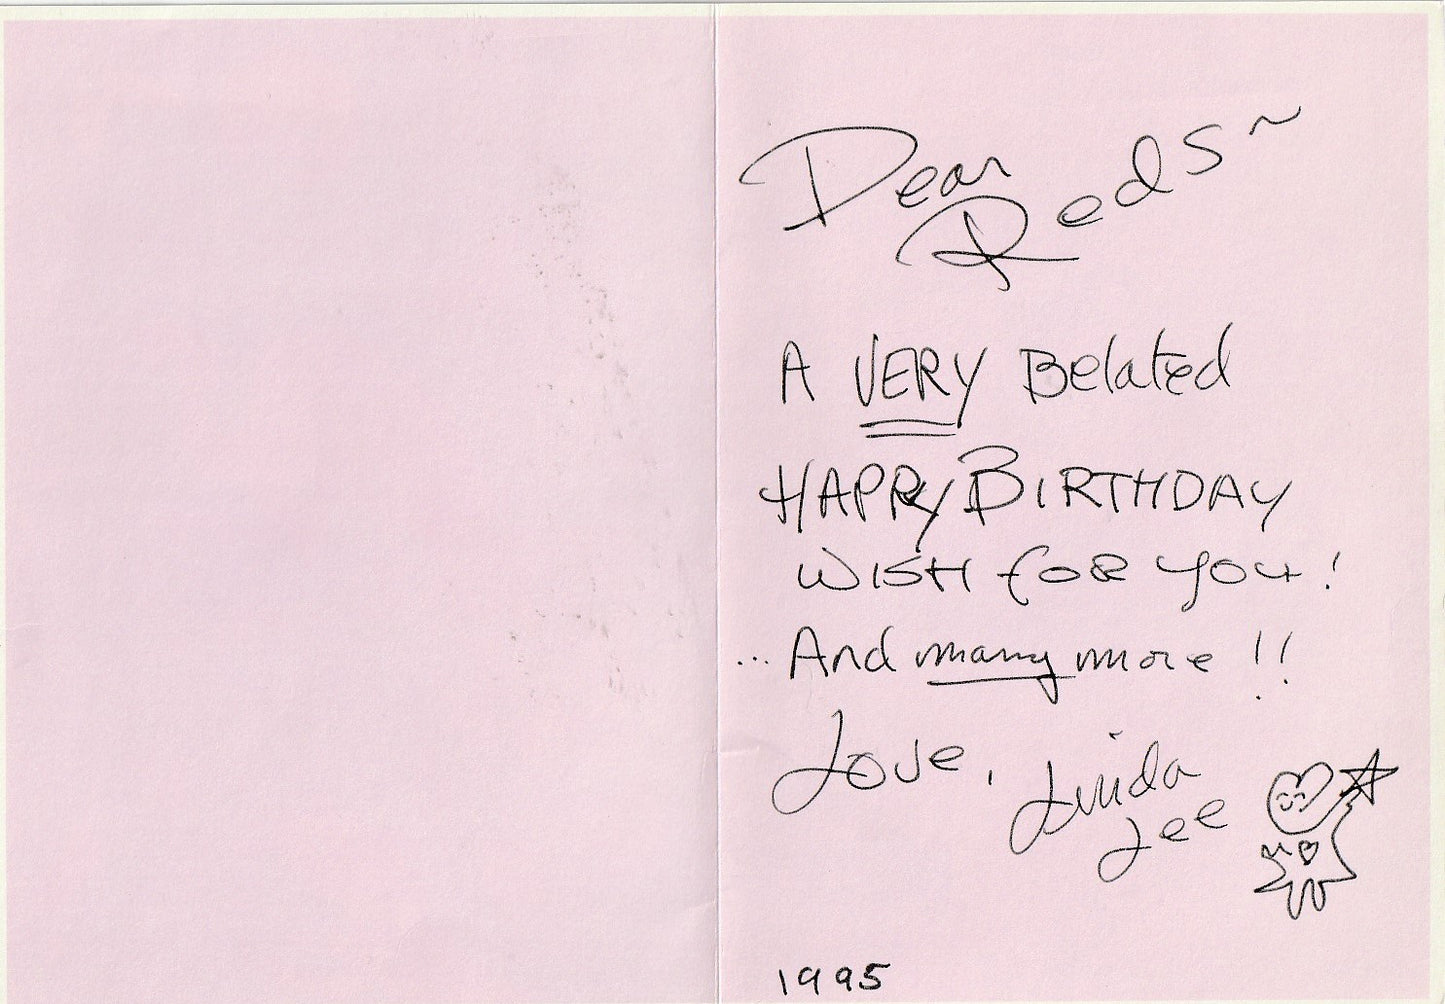 Dear
Reds ~
A VERY Belated
HAPPY BIRTHDAY
WISH FOR YOU!
... And many more!!
Love, Linda
Lee
1995